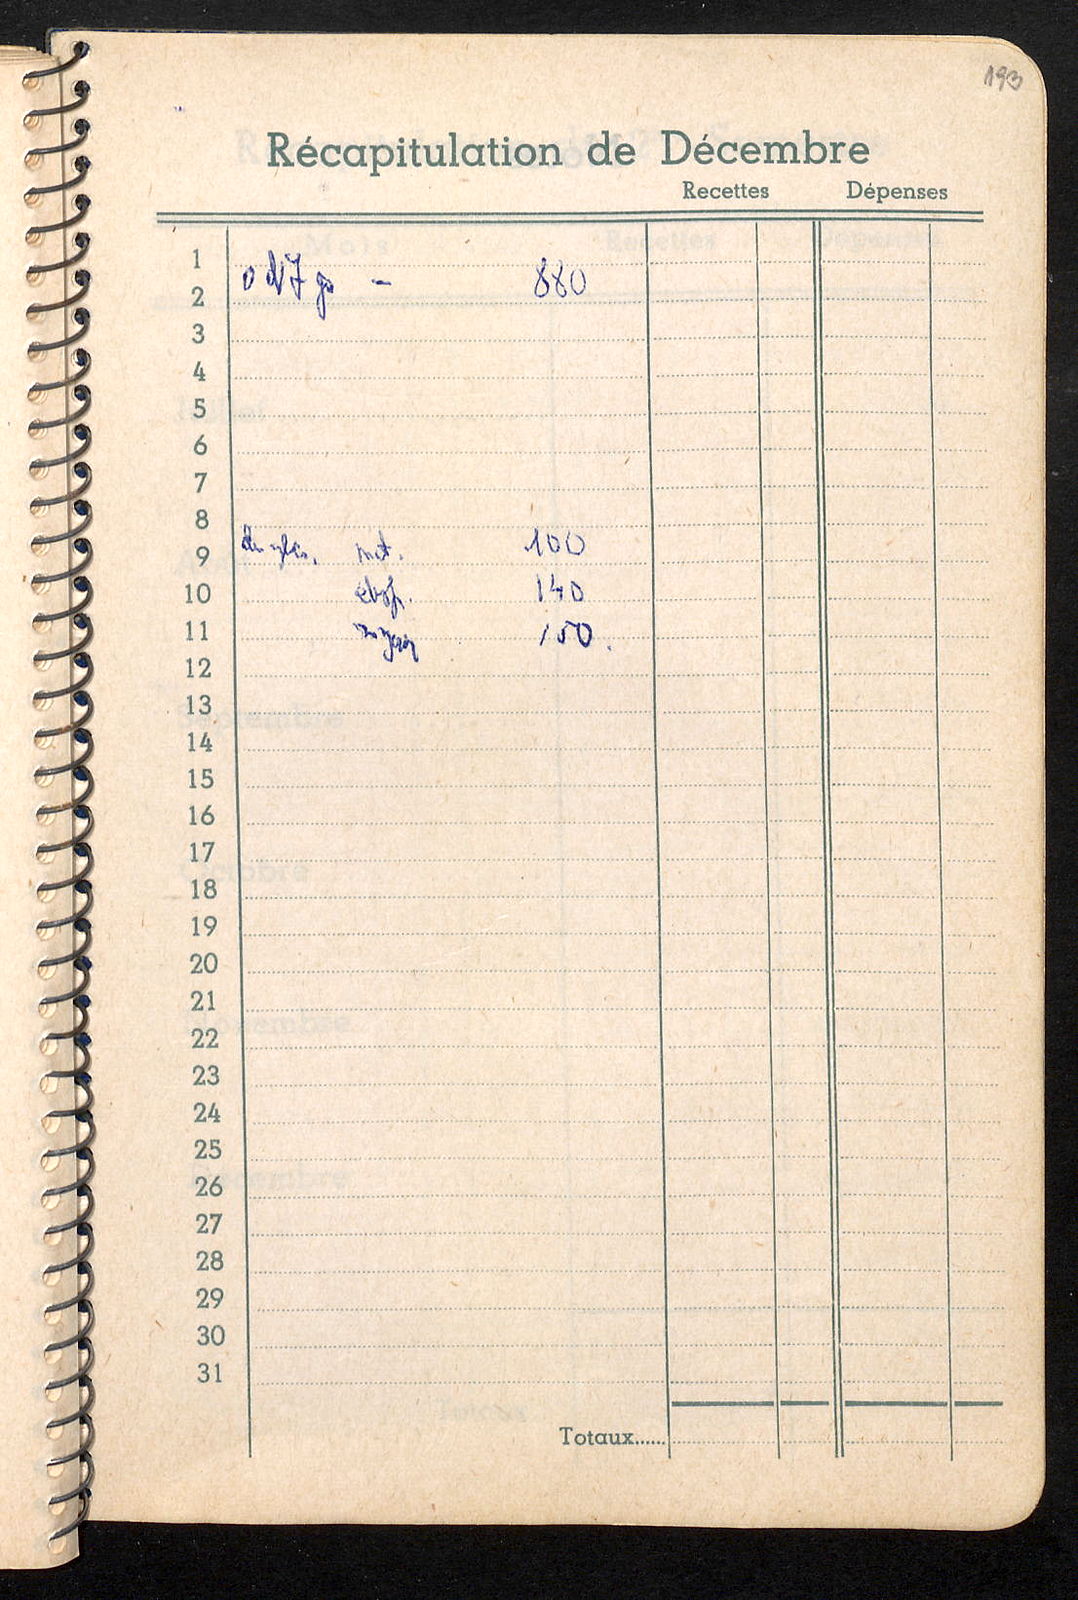 193
Récapitulation de Décembre
Recettes Dépenses
1
2 880
3
4
5
6
7
8
9 mét. 100
10 140
11 moyen 150.
12
13
14
15
16
17
18
19
20
21
22
23
24
25
26
27
28
29
30
31
Totaux......